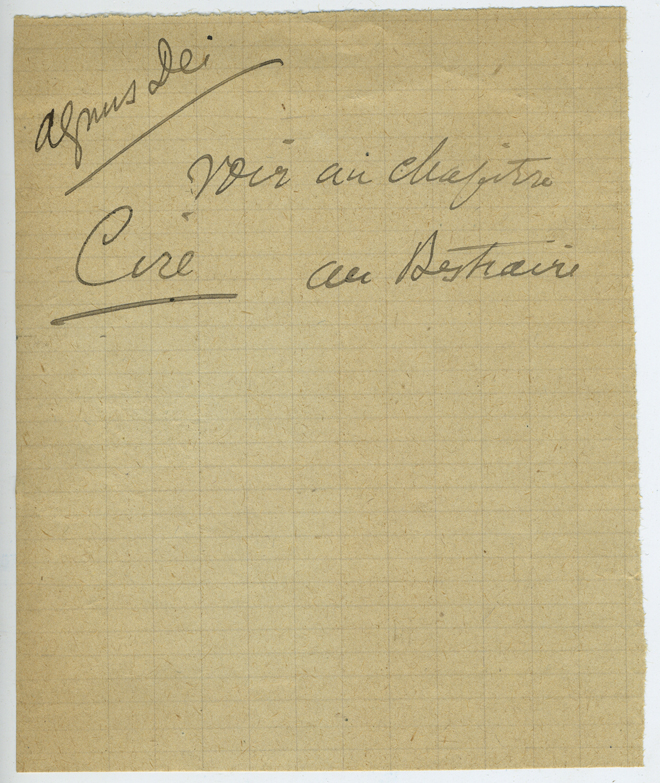 Agnus Dei
Voir au chapitre
Cire
au Bestiaire